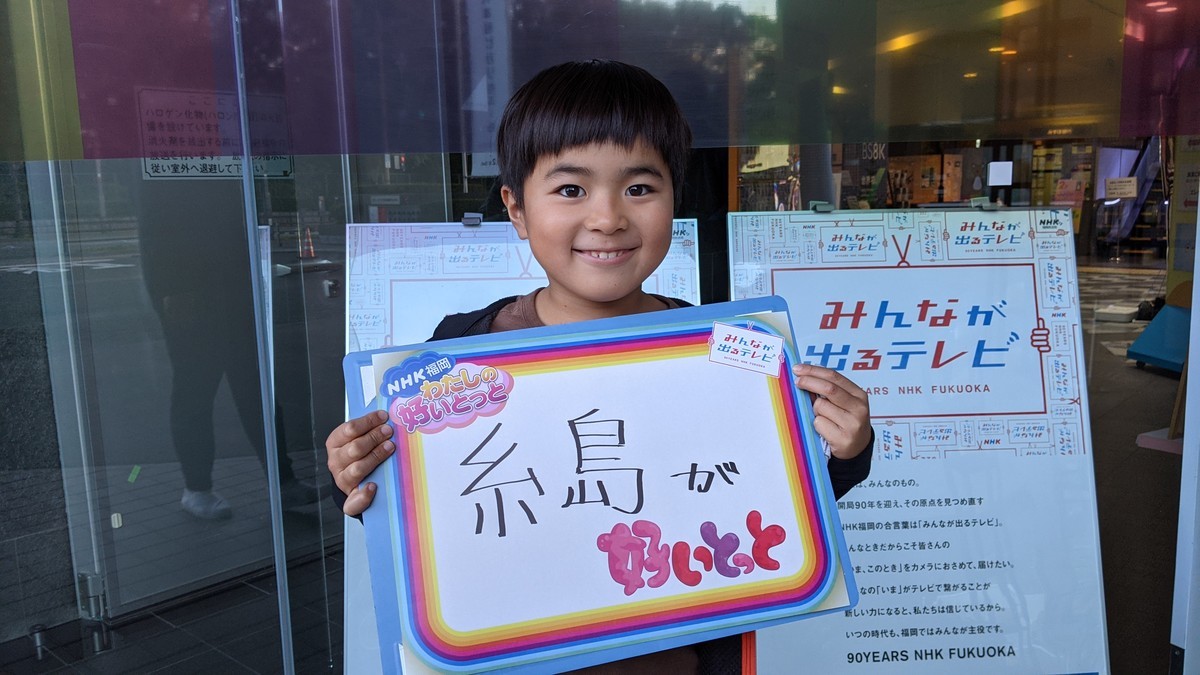 ハロゲン化物(ハロン
備を設けています。
従い室外へ退避して下さい
BS8K
NHK
みんなが
出るテレビ
90YEARS NHK FUKUOKA
みんなが
出るテレビ
90YEARS NHK FUKUOKA
NHK
みんなが
出るテレビ
YEARS NHK FUKUOKA
NHK福岡
わたしの
好いとっと
みんなが
出るテレビ
90YEARS NHK FUKUOKA
糸島が
好いとっと
は、みんなのもの。
開局90年を迎え、その原点を見つめ直す
NHK福岡の合言葉は「みんなが出るテレビ」。
んなときだからこそ皆さんの
ま、このとき」をカメラにおさめて、届けたい。
なの「いま」がテレビで繋がることが
新しい力になると、私たちは信じているから。
いつの時代も、福岡ではみんなが主役です。
90YEARS NHK FUKUOKA